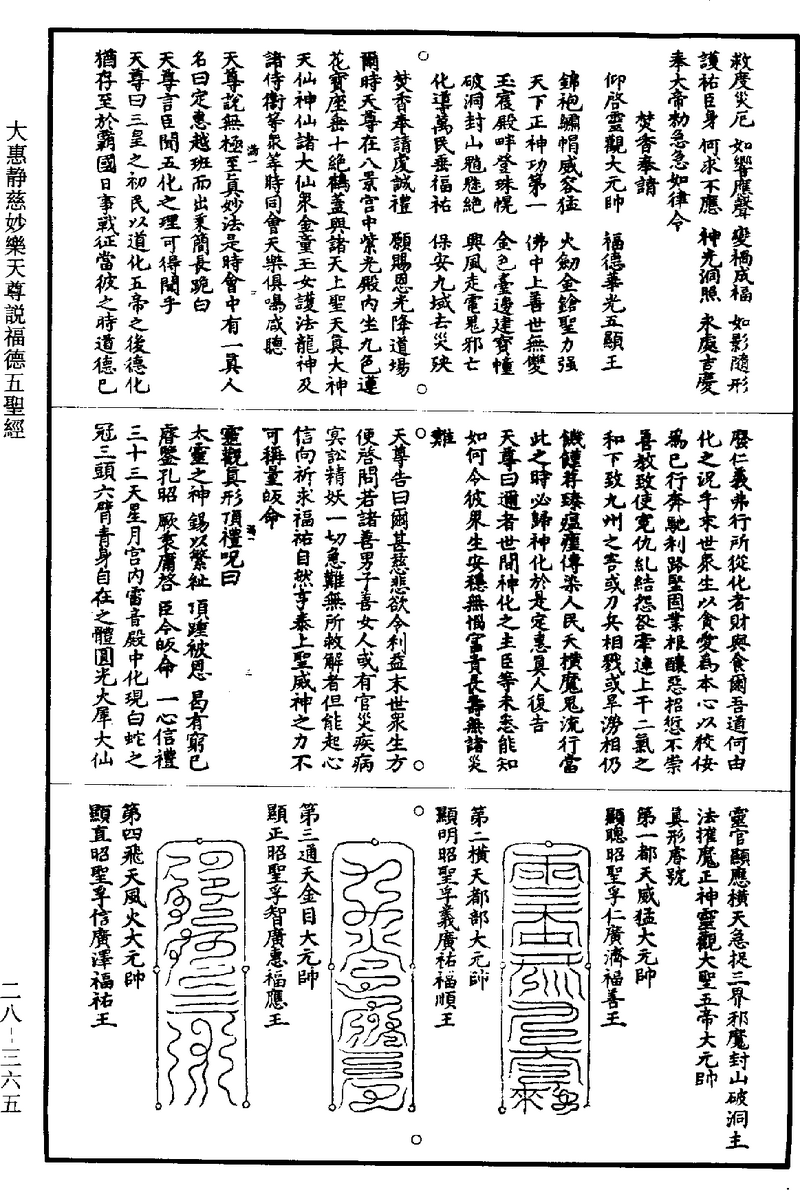 救度災厄　如響應聲　變禍成福　如影隨形
護祐臣身　何求不應　神光洞照　永處吉慶
奉大帝勑急急如律令
焚香奉請
仰啓靈觀大元帥　福德華光五顯王
錦袍繡帽威容猛　火劒金鎗聖力强
天下正神功第一　佛中上善世無雙
玉宸殿畔登珠幌　金色臺邊建寶幢
破洞封山魑魅絕　興風走電鬼邪亡
化導萬民垂福祐　保安九域去災殃
焚香奉請虔誠禮　願賜恩光降道場
爾時天尊在八景宫中紫光殿内坐九色蓮
花寶座垂十絕鶴蓋與諸天上聖天真大神
天仙神仙諸大仙衆金童玉女護法龍神及
諸侍衛等衆䒭時同會天樂俱鳴咸聽
天尊說無極至真妙法是時會中有一真人
名曰定惠越班而出秉簡長跪白
天尊言臣聞五化之理可得聞乎
天尊曰三皇之初民以道化五帝之後德化
猶存至於霸國日事戰征當彼之時道德已
廢仁義弗行所從化者財與食爾吾道何由
化之况乎末世衆生以貪愛為本心以狡佞
爲已行奔馳利路堅固業根釀惡招愆不崇
善教致使寃仇糺結怨欲牽連上干二氣之
和下致九州之害或刀兵相戮或旱澇相仍
饑饉荐臻瘟瘽傳染人民夭橫魔鬼流行當
此之時必歸神化於是定惠真人復告
天尊曰邇者世間神化之主臣等未悉能知
如何令彼衆生安穩無惱富貴長壽無諸災
難
天尊告曰爾甚慈悲欲令利益末世衆生方
便啓問若諸善男子善女人或有官災疾病
冥訟精妖一切急難無所救解者但能起心
信向祈求福祐自然享泰上聖威神之力不
可稱量皈命
靈觀真形頂禮呪曰
太靈之神　錫以繁祉　頂踵被恩　曷有窮已
睿鑒孔昭　厥秉庸啓　臣今皈命　一心信禮
三十三天星月宫内雷音殿中化現白蛇之
冠三頭六臂青身自在之體圓光大犀大仙
靈官顯應橫天急捉三界邪魔封山破洞主
法摧魔正神靈觀大聖五帝大元帥
真形睿號
第一都天威猛大元帥
顯聰昭聖孚仁廣濟福善王
第二橫天都部大元帥
顯明昭聖孚義廣祐福順王
第三通天金目大元帥
顯正昭聖孚智廣惠福應王
第四飛天風火大元帥
顯直昭聖孚信廣澤福祐王
大惠静慈妙樂天尊説福德五聖經
二八－三六五